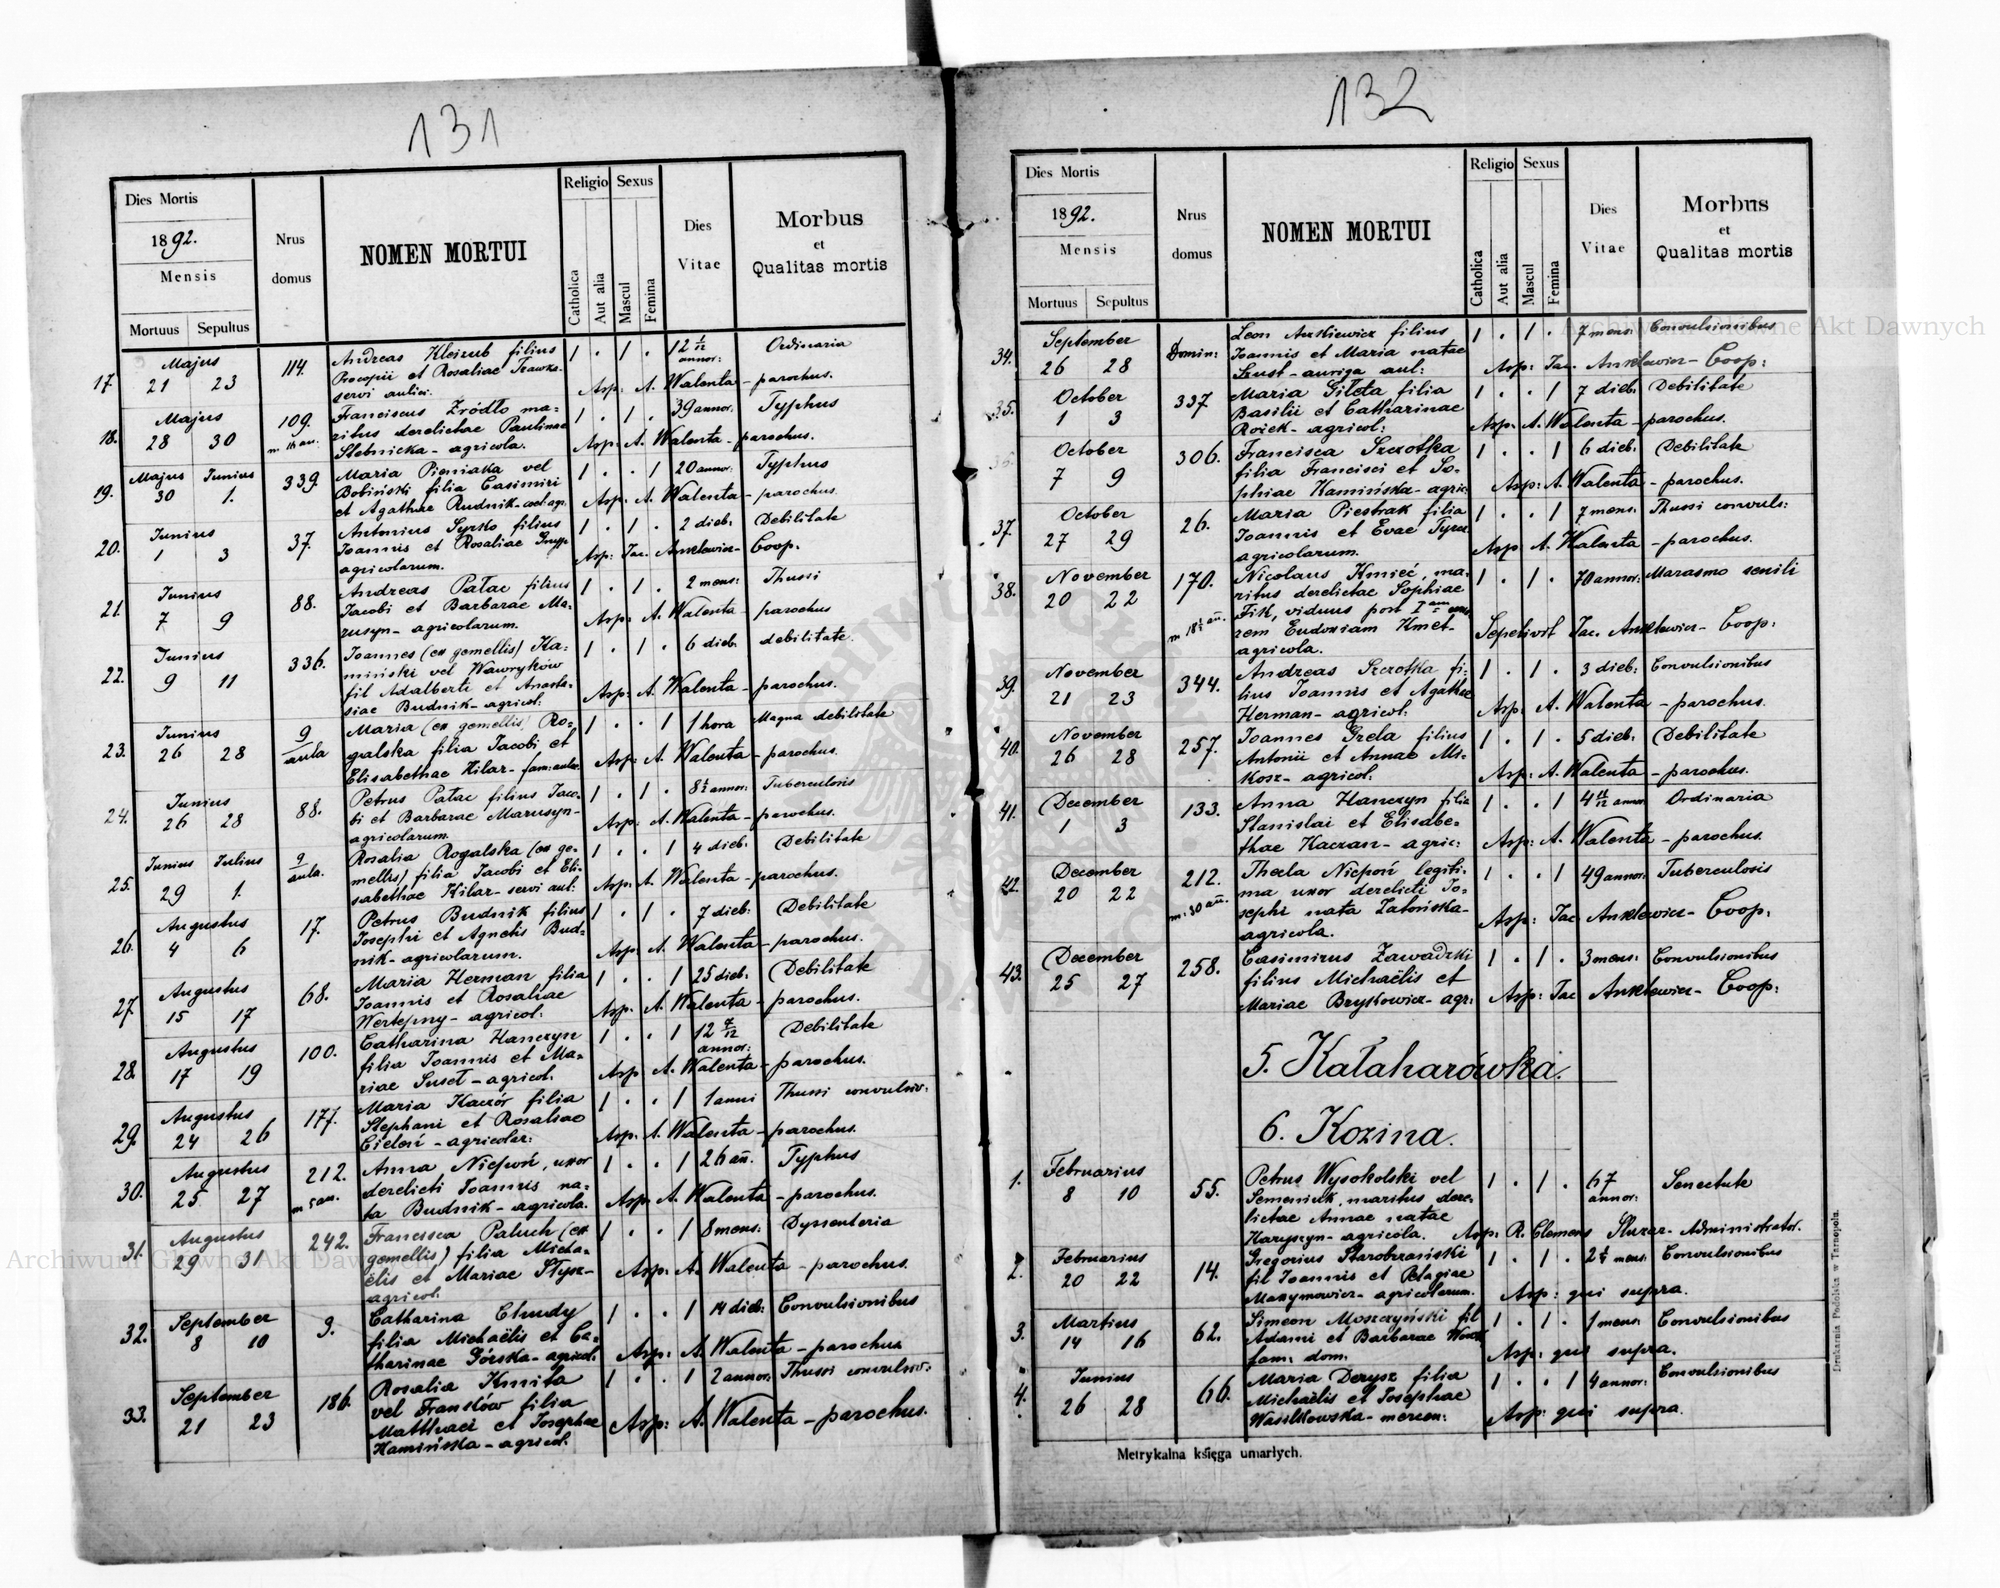 131
Dies Mortis
1892.
Mensis
Mortuus Sepultus
Nrus domus
NOMEN MORTUI
Religio Sexus
Catholica
Aut alia
Mascul
Femina
Dies Vitae
Morbus
et
Qualitas mortis
17. Majus 21 23 114. Andreas Kleizub filius 1 . 1 . 12 1/12 annor: Ordinaria
Procopii et Rosaliae
servi aulici. Asp: A. Walenta - parochus.
18. Majus 28 30 109. Franciscus Źródło ma- 1 . 1 . 39 annor. Typhus
ritus derelictae Paulinae
Slebnicka - agricola. Asp: A. Walenta - parochus.
19. Majus 30 Junius 1. 339. Maria Pieniaka vel 1 . . 1 20 annor: Typhus
Bobiński filia Casimiri
et Agathae Budnik Asp: A. Walenta - parochus.
20. Junius 1 3 37. Antonius Syrko filius 1 . 1 . 2 dieb: Debilitate
Joannis et Rosaliae
agricolarum. Asp: Jac. Ankiewicz - Coop.
21. Junius 7 9 88. Andreas Pałac filius 1 . 1 . 2 mens: Thussi
Jacobi et Barbarae Ma-
rusyn - agricolarum. Asp: A. Walenta - parochus
22. Junius 9 11 336. Joannes (ex gemellis) Ka- 1 . 1 . 6 dieb. debilitate.
miński vel Wawryków
fil Adalberti et Anasta-
siae Budnik - agricol: Asp: A. Walenta - parochus.
23. Junius 26 28 9 aula Maria (ex gemellis) Ro- 1 . . 1 1 hora Magna debilitate
galska filia Jacobi et
Elisabethae Hilar - fam: aulae Asp: A. Walenta - parochus.
24. Junius 26 28 88. Petrus Pałac filius Jaco- 1 . 1 . 8 1/2 annor: Tuberculosis
bi et Barbarae Marusyn -
agricolarum. Asp: A. Walenta - parochus.
25. Junius 29 Julius 1. 9 aula. Rosalia Rogalska (ex ge- 1 . . 1 4 dieb. Debilitate
mellis) filia Jacobi et Eli-
sabethae Hilar - servi aul: Asp: A. Walenta - parochus.
26. Augustus 4 6 17. Petrus Budnik filius 1 . 1 . 7 dieb: Debilitate
Josephi et Agnetis Bud-
nik - agricolarum. Asp: A. Walenta - parochus.
27. Augustus 15 17 68. Maria Herman filia 1 . . 1 25 dieb: Debilitate
Joannis et Rosaliae
Wertepny - agricol: Asp: A. Walenta - parochus.
28. Augustus 17 19 100. Catharina Hanczyn 1 . . 1 12 annor: Debilitate
filia Joannis et Ma-
riae Suset - agricol. Asp A. Walenta - parochus.
29. Augustus 24 26 177. Maria Kaczór filia 1 . . 1 1 anni Thussi convulsiv:
Stephani et Rosaliae
Cieleń - agricolar: Asp: A. Walenta - parochus.
30. Augustus 25 27 212. m 5 an. Anna Niepoń, uxor 1 . . 1 26 añ. Typhus
derelicti Joannis na-
ta Budnik - agricola. Asp: A. Walenta - parochus.
31. Augustus 29 31 242. Francisca Paluch (ex 1 . . 1 8 mens: Dysenteria
gemellis) filia Micha-
ëlis et Mariae Stysz-
agricol: Asp: A. Walenta - parochus.
32. September 8 10 9. Catharina Chudy 1 . . 1 14 dieb: Convulsionibus
filia Michaëlis et Ca-
tharinae Górska - agricol. Asp: A. Walenta - parochus
33. September 21 23 186. Rosalia Kmita 1 . . 1 2 annor: Thussi convulsiv:
vel Franslów filia
Matthaei et Josephae
Kamińska - agricol. Asp: A. Walenta - parochus.
132
Dies Mortis
1892.
Mensis
Mortuus Sepultus
Nrus domus
NOMEN MORTUI
Religio Sexus
Catholica
Aut alia
Mascul
Femina
Dies Vitae
Morbus
et
Qualitas mortis
34. September 26 28 Domin: Leon Ankiewicz filius 1 . 1 . 7 mens: Convulsionibus
Joannis et Maria natae
Szust - auriga aul: Asp: Jac. Ankiewicz - Coop:
35. October 1 3 337 Maria Gileta filia 1 . . 1 7 dieb: Debilitate
Basilii et Catharinae
Roiek - agricol: Asp: A. Walenta - parochus.
36. October 7 9 306. Francisca Szczotka 1 . . 1 6 dieb: Debilitate
filia Francisci et So-
phiae Kamińska - agric: Asp: A. Walenta - parochus.
37. October 27 29 26. Maria Piestrak filia 1 . . 1 7 mens: Thussi convuls:
Joannis et Evae
agricolarum. Asp A. Walenta - parochus.
38. November 20 22 170. Nicolaus Kmieć, ma- 1 . 1 . 70 annor: Marasmo senili
ritus derelictae Sophiae
Fik, viduus post I am uxo
rem Eudoxiam Kmet-
agricola. Sepelivit Jac. Ankiewicz - Coop:
39. November 21 23 344. Andreas Szczotka fi- 1 . 1 . 3 dieb: Convulsionibus
lius Joannis et Agathae
Herman - agricol: Asp: A. Walenta - parochus.
40. November 26 28 257. Joannes Grela filius 1 . 1 . 5 dieb: Debilitate
Antonii et Annae Mi-
kosz - agricol: Asp: A. Walenta - parochus.
41. December 1 3 133. Anna Hanczyn filia 1 . . 1 4 11/12 annor Ordinaria
Stanislai et Elisabe-
thae Kaczan - agric: Asp: A. Walenta - parochus.
42. December 20 22 212. m: 30 añ. Thecla Niepoń legiti- 1 . . 1 49 annor: Tuberculosis
ma uxor derelicti Jo-
sephi nata Zatońska-
agricola. Asp: Jac Ankiewicz - Coop.
43. December 25 27 258. Casimirus Zawadzki 1 . 1 . 3 mens: Convulsionibus
filius Michaëlis et
Mariae Bryskowicz - agr: Asp: Jac Ankiewicz - Coop:
5. Kałaharówka.
6. Kozina.
1. Februarius 8 10 55. Petrus Wysokolski vel 1 . 1 . 67 annor: Senectute
Semeniuk maritus dere-
lictae Annae natae
Haryszyn - agricola. Asp: R. Clemens Śluzar - Administrator.
2. Februarius 20 22 14. Gregorius Starobrański 1 . 1 . 2 1/2 mens: Convulsionibus
fil Joannis et Pelagiae
Maxymowicz - agricolarum. Asp: qui supra.
3. Martius 14 16 62. Simeon Moszczyński fil 1 . 1 . 1 mens: Convulsionibus
Adami et Barbarae
fam: dom. Asp: qui supra.
4. Junius 26 28 66. Maria Derysz filia 1 . . 1 4 annor: Convulsionibus
Michaëlis et Josephae
Wasilkowska - mercen: Asp: qui supra.
Metrykalna księga umarłych.
Drukarnia Podolska w Tarnopolu.
Archiwum Główne Akt Dawnych
Archiwum Główne Akt Dawnych